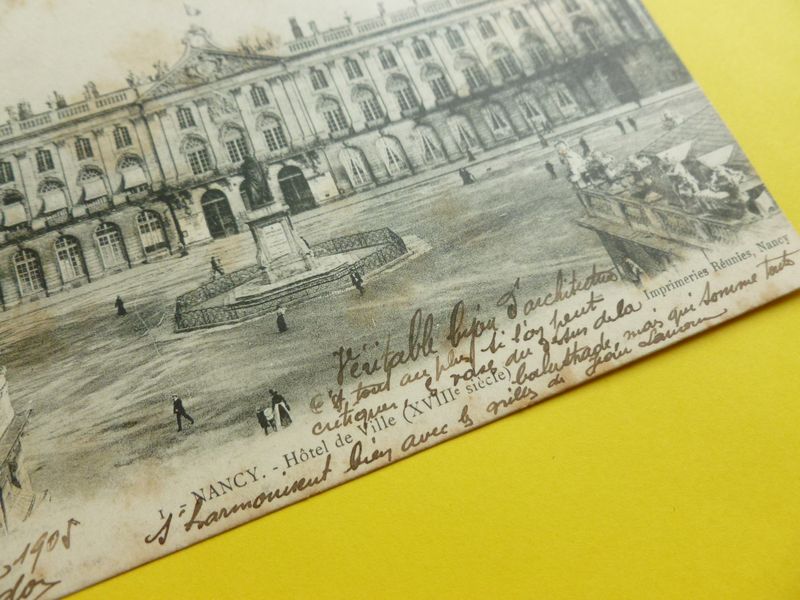 Imprimeries Réunies, Nancy
Véritable bijou d'architecture
C'est tout au plus si l'on peut
critiquer les vases du dessus de la
balustrade mais qui somme toute
1. - NANCY. - Hôtel de Ville (XVIIIe siècle)
s'harmonisent bien avec les grilles de Jean Lamour
1905